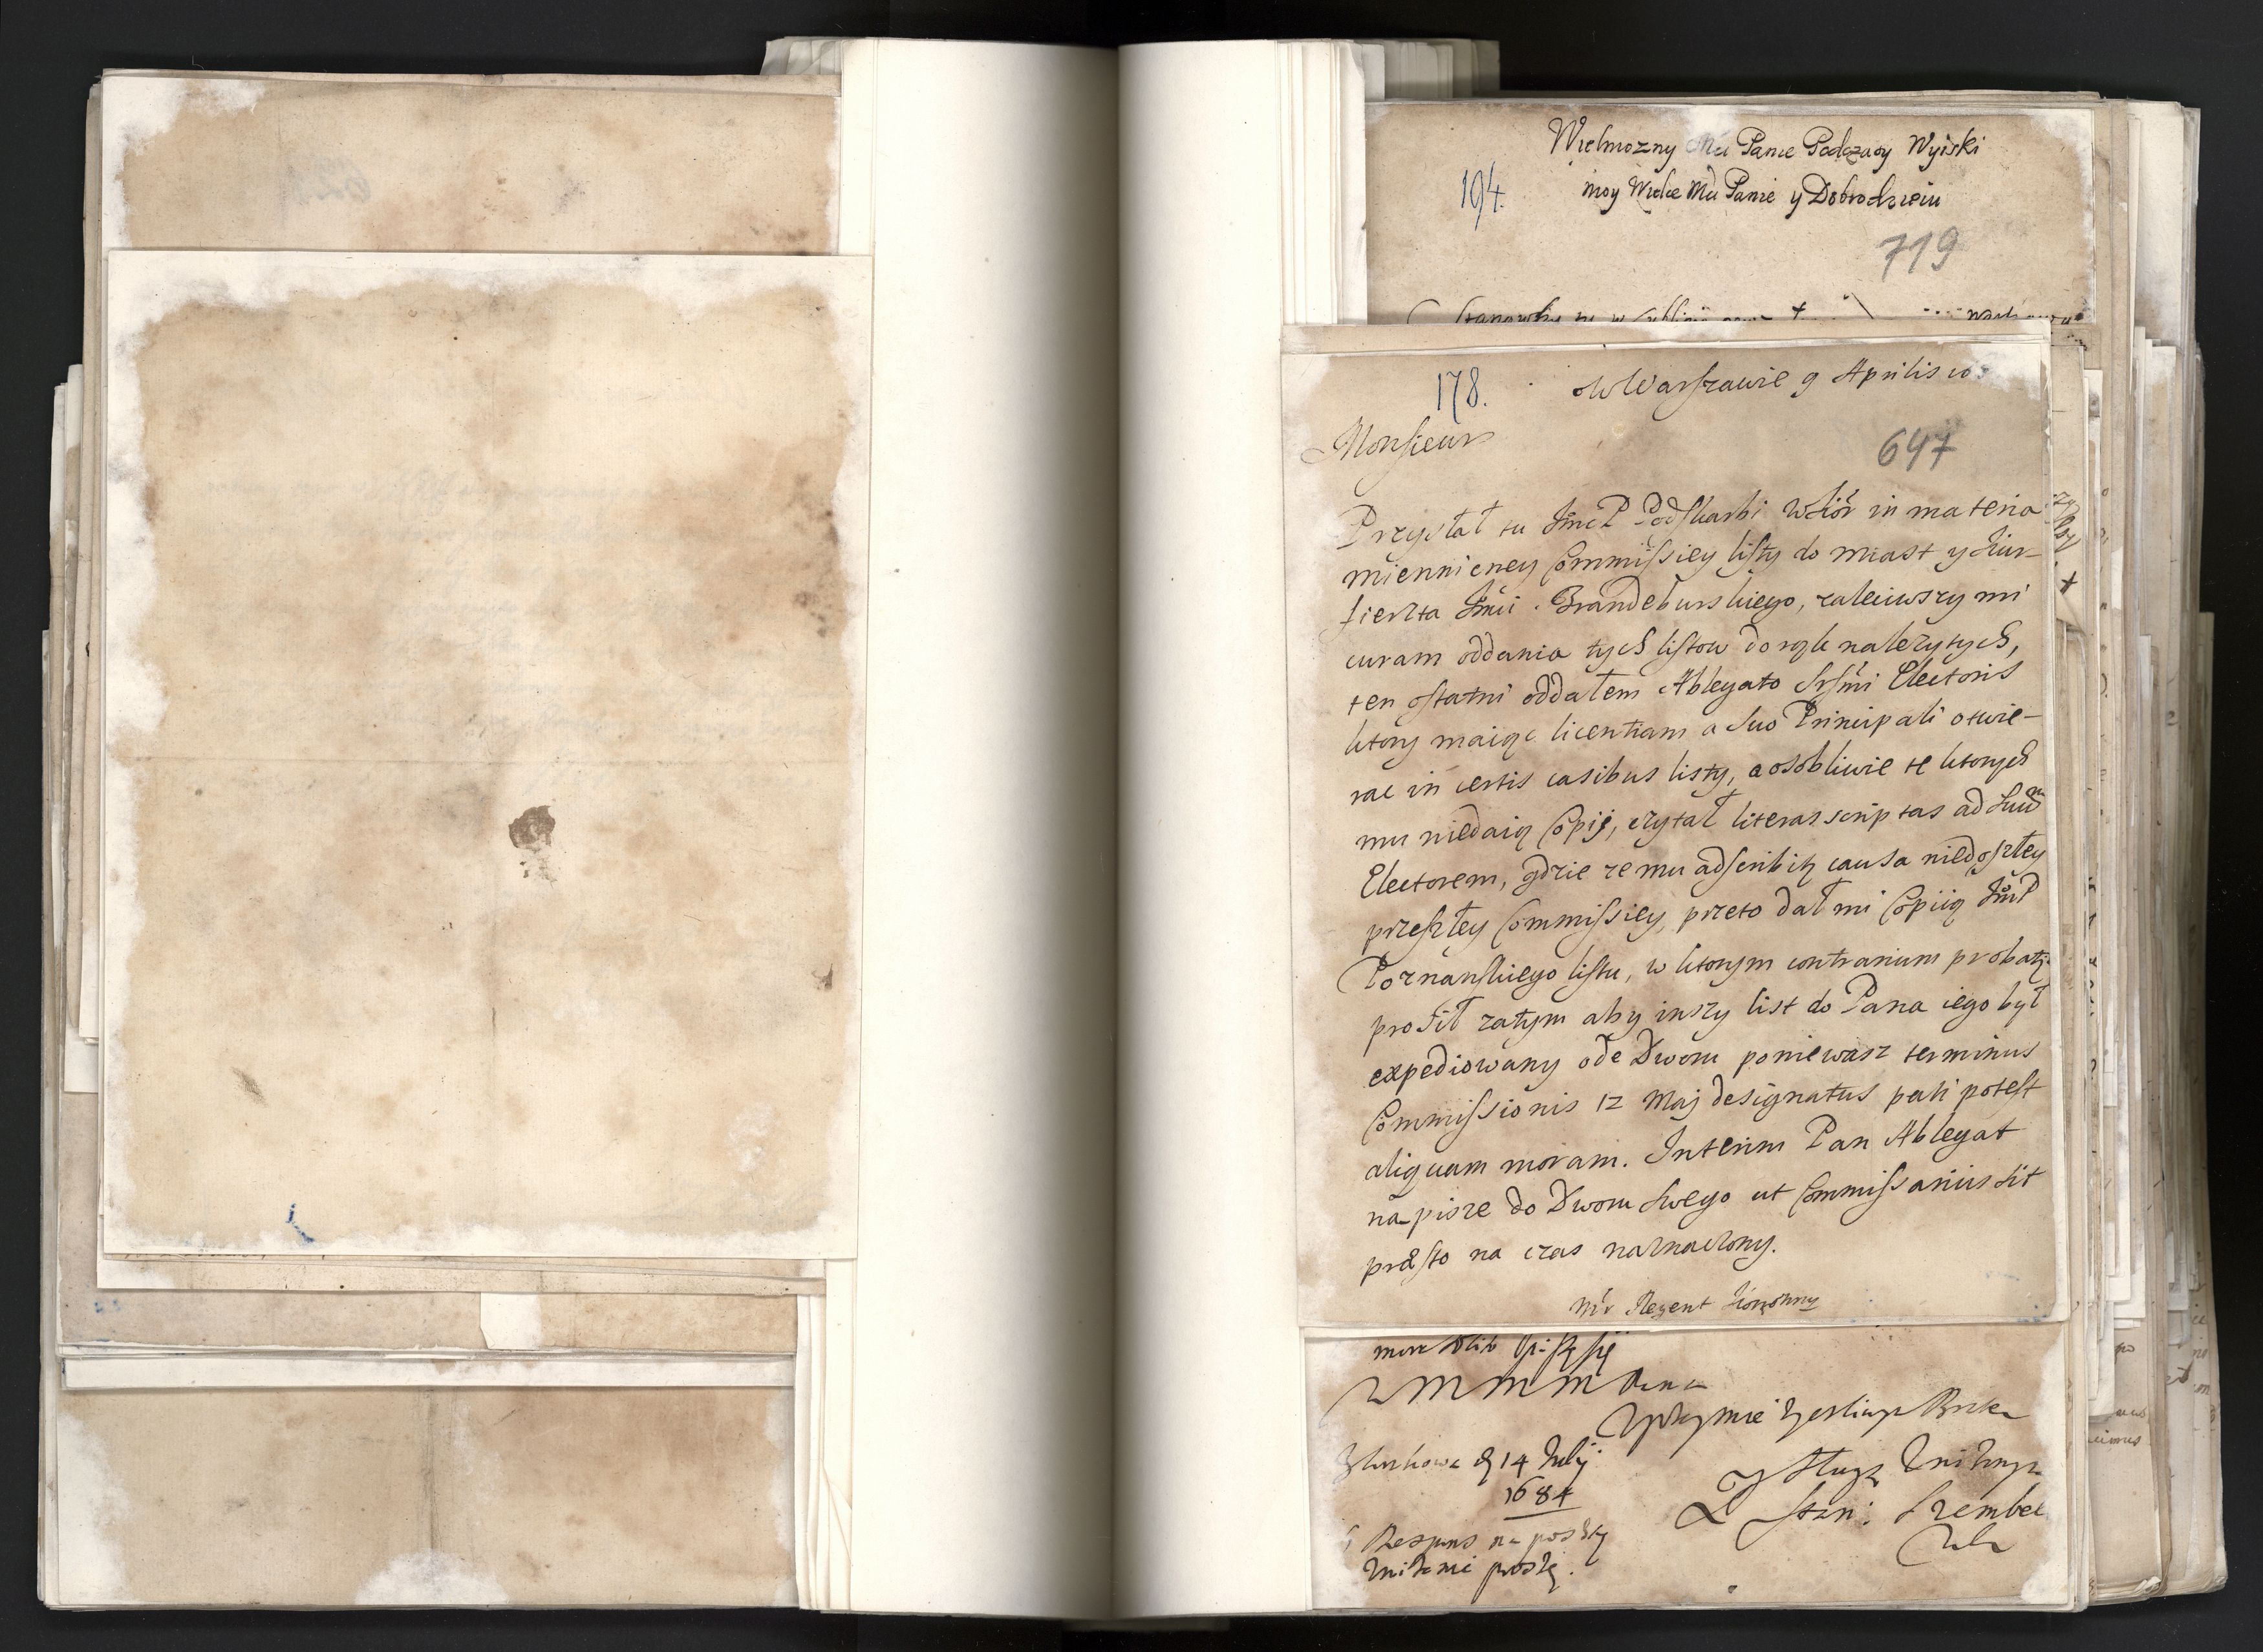 Wielmozny Mci Panie Podczaszy Wyiski
194.
moy Wielce Mci Panie y Dobrodzieiu
719
178.
w Warszawie 9 Aprilis
Monsieur
647
Przysłał tu JmcP Podskarbi WKor in materia
miennicney Commissiey listy do miast y Kur-
fierszta Jmci Brandeburskiego, zaleciwszy mi
curam oddania tych listow do rąk nalezytych,
ten ostatni oddałem Ablegato Srśmi Electoris
ktory maiąc licentiam a suo Principali otwie-
rac in certis casibus listy, a osobliwie te ktorych
mu niedaią Copij, czytał literas scriptas ad suum
Electorem, gdzie ze mu adscribitꝫ causa niedoszłey
przeszłey Commissiey, przeto dał mi Copiią JmP
Poznanskiego listu, w ktorym contrarium probatꝫ.
prosił zatym aby inszy list do Pana iego był
expediowany ode Dworu poniewasz terminus
Commissionis 12 Maj designatus pati potest
aliquam moram. Interim Pan Ablegat
napisze do Dworu swego ut Commissarius sit
presto na czas naznaczony.
Regent Koronny
WMMM Pana
14 Julij
1684
y sługa
Stan: Szembek
Respons na posztę